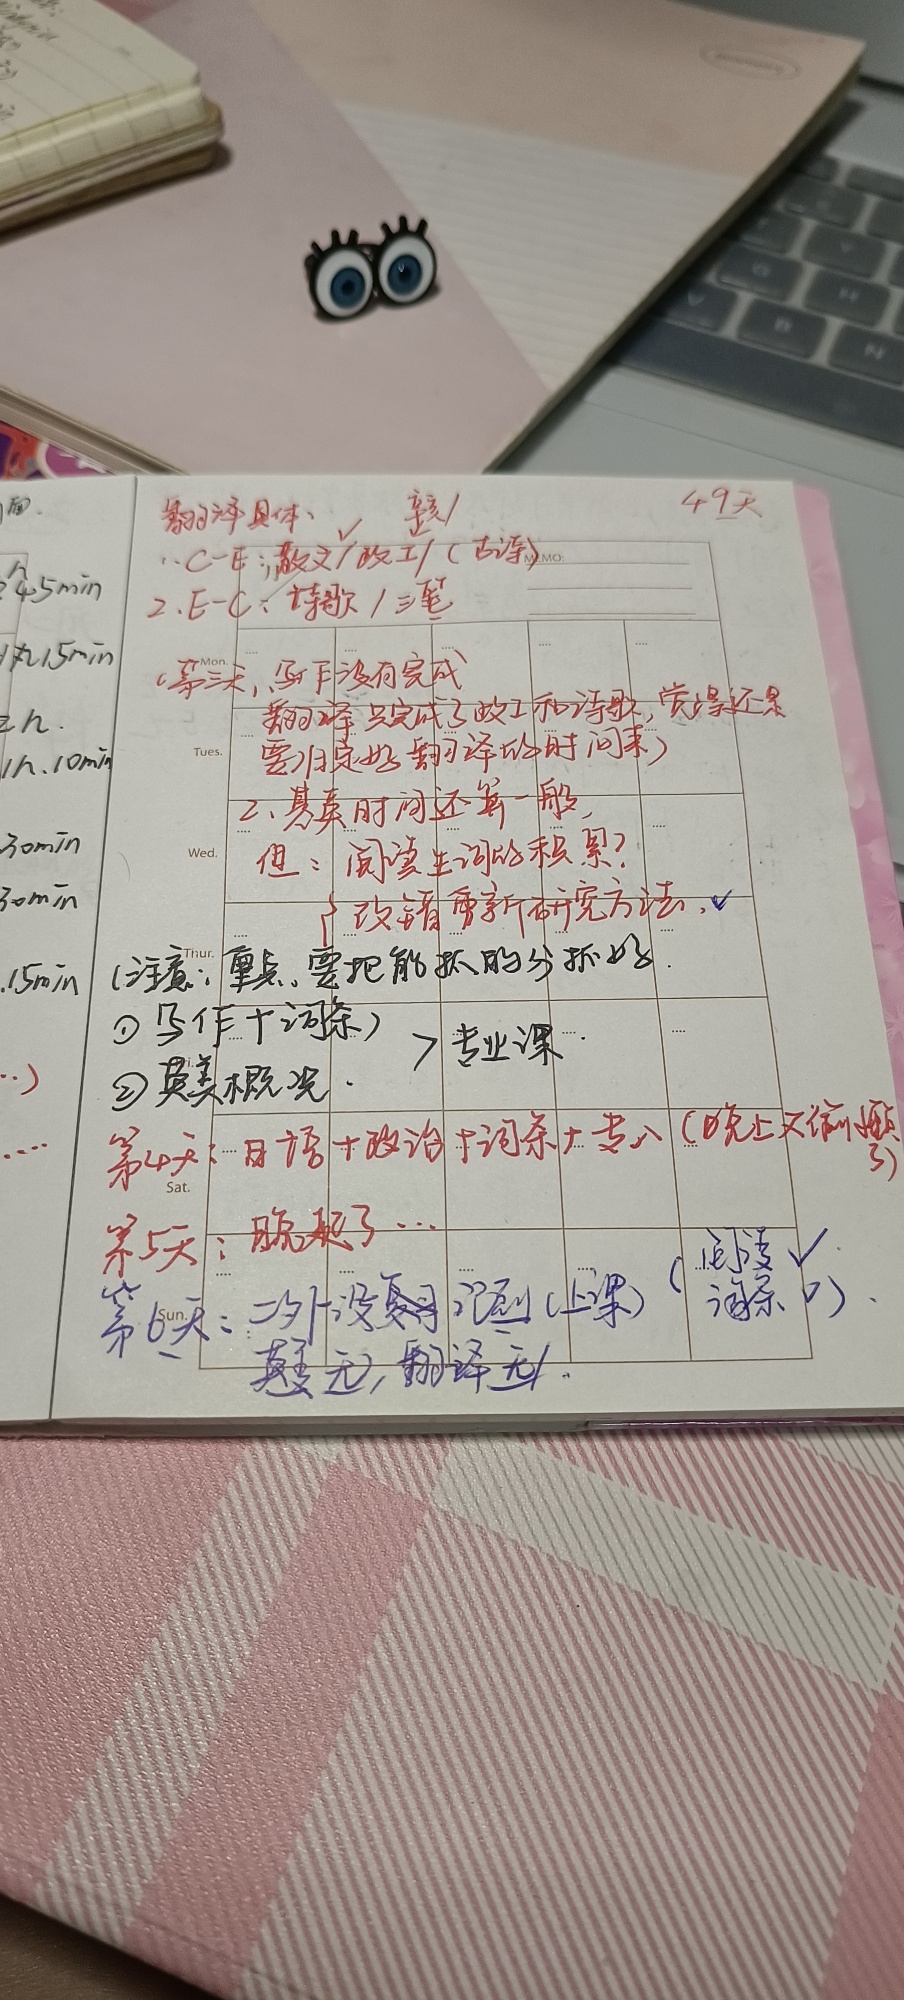 翻译具体、
49天
1. C-E:散文/政工/(古诗)
MEMO:
2. E-C:诗歌/三笔
Mon.
(第三天,写作没有完成
翻译只完成了政工和诗歌,觉得还是
Tues.
要归定好翻译的时间来)
2、基英时间还算一般,
Wed.
但:阅读生词的积累?
改错重新研究方法.✓
Thur.
(注意:重点、要把能抓的分抓好.
① 写作+词条)
>专业课.
② 英美概况.
第4天:日语+政治+词条+专八(晚上又偷懒
了)
Sat.
第5天:晚起了...
第6天:二外没复习记刷(上课)(阅读✓
词条✓).
Sun.
基英无,翻译无/.
面.
45min
15min
2h.
1h.10min
30min
30min
.15min
..)
....